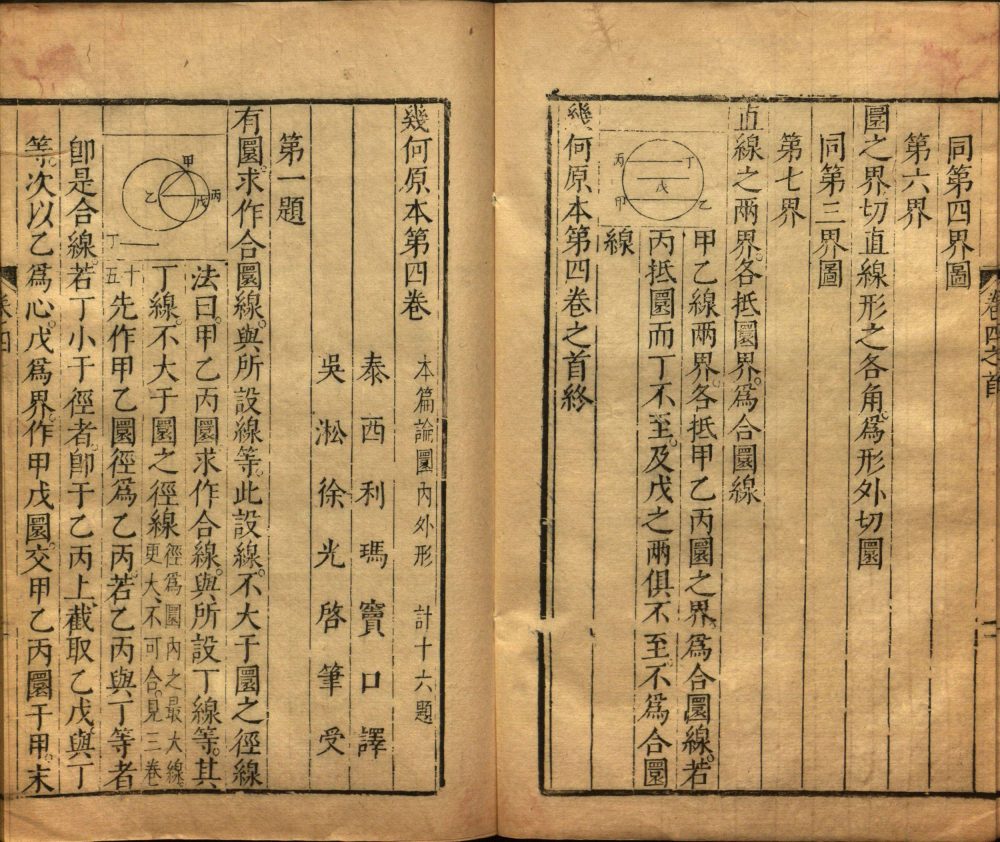 同第四界圖
第六界
圜之界切直線形之各角。為形外切圜
同第三界圖
第七界
直線之兩界。各抵圜界。為合圜線
丙
丁
戊
甲
乙
甲乙線兩界。各抵甲乙丙圜之界。為合圜線。若
丙抵圜而丁不至。及戊之兩俱不至。不為合圜
線
幾何原本第四卷之首終
卷四之首
幾何原本第四卷 本篇論圜內外形 計十六題
泰西利瑪竇口譯
吳淞徐光啓筆受
第一題
有圜。求作合圜線。與所設線等。此設線。不大于圜之徑線
甲
乙
戊
丙
丁
法曰。甲乙丙圜求作合線。與所設丁線等。其
丁線。不大于圜之徑線徑為圜內之最大線。更大、不可合。見三卷
十五先作甲乙圜徑為乙丙。若乙丙與丁等者
卽是合線。若丁小于徑者。卽于乙丙上、截取乙戊。與丁
等。次以乙為心。戊為界。作甲戊圜。交甲乙丙圜于甲。末
卷之四